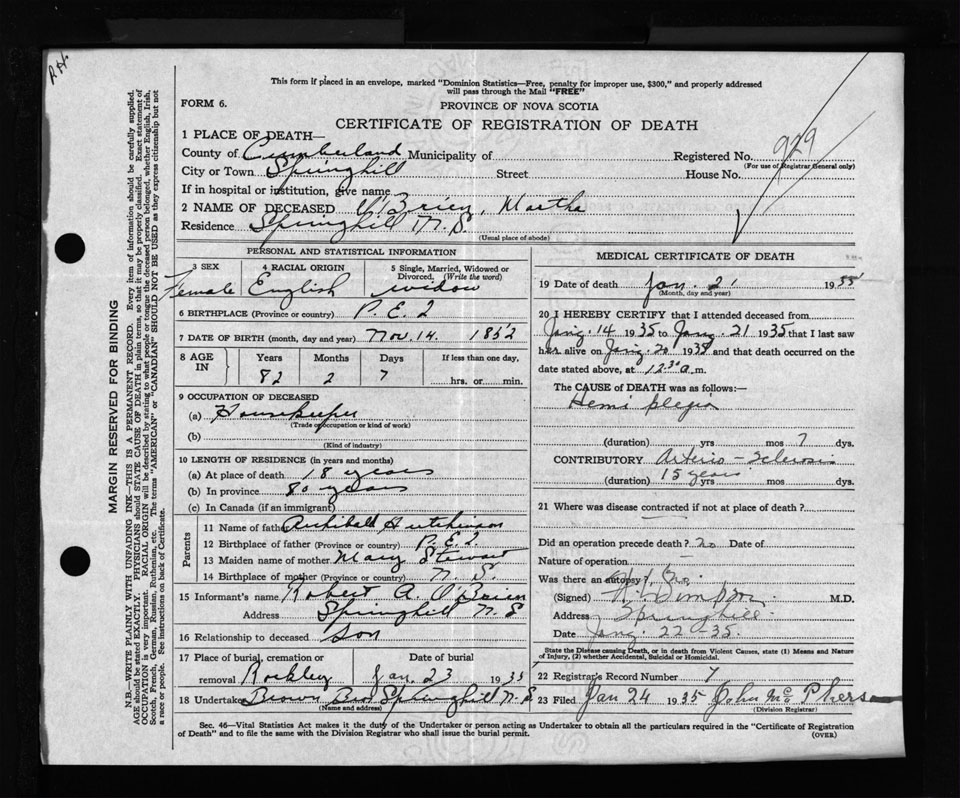 P.H.
This form if placed in an envelope, marked "Dominion Statistics—Free, penalty for improper use, $300," and properly addressed
will pass through the Mail "FREE"
FORM 6.
PROVINCE OF NOVA SCOTIA
CERTIFICATE OF REGISTRATION OF DEATH
1 PLACE OF DEATH—
County of Cumberland Municipality of Registered No. 929
(For use of Registrar General only)
City or Town Springhill Street House No.
If in hospital or institution, give name
2 NAME OF DECEASED O'Brien, Martha
Residence Springhill N.S.
(Usual place of abode)
PERSONAL AND STATISTICAL INFORMATION
3 SEX 4 RACIAL ORIGIN 5 Single, Married, Widowed or
Divorced. (Write the word)
Female English widow
6 BIRTHPLACE (Province or country) P.E.I
7 DATE OF BIRTH (month, day and year) Nov. 14. 1852
8 AGE IN Years Months Days If less than one day,
82 2 7 hrs. or min.
9 OCCUPATION OF DECEASED
(a) Housekeeper
(Trade or occupation or kind of work)
(b)
(Kind of industry)
10 LENGTH OF RESIDENCE (in years and months)
(a) At place of death 18 years
(b) In province 80 years
(c) In Canada (if an immigrant)
Parents
11 Name of father Archibald Hutchinson
12 Birthplace of father (Province or country) P.E.I
13 Maiden name of mother Mary Stewart
14 Birthplace of mother (Province or country) N.S.
15 Informant's name Robert A. O'Brien
Address Springhill N.S
16 Relationship to deceased Son
17 Place of burial, cremation or Date of burial
removal Rockley Jan. 23 1935
18 Undertaker Brown Bros Springhill N.S
(Name and address)
MEDICAL CERTIFICATE OF DEATH
19 Date of death Jan. 21 1935
(Month, day and year)
20 I HEREBY CERTIFY that I attended deceased from
Jany. 14 1935 to Jany. 21 1935 that I last saw
her alive on Jany. 20 1935 and that death occurred on the
date stated above, at 12.30 a.m.
The CAUSE of DEATH was as follows:—
Hemi plegia
(duration) yrs mos 7 dys.
CONTRIBUTORY Arterio-Sclerosis
(duration) 15 years yrs mos dys.
21 Where was disease contracted if not at place of death?
Did an operation precede death? no Date of
Nature of operation —
Was there an autopsy? No.
(Signed) Simpson M.D.
Address Springhill
Date Jany. 22-35.
State the Disease causing Death, or in death from Violent Causes, state (1) Means and Nature
of Injury, (2) whether Accidental, Suicidal or Homicidal.
22 Registrar's Record Number 7
23 Filed Jan 24 1935 John McPherson
(Division Registrar)
Sec. 46—Vital Statistics Act makes it the duty of the Undertaker or person acting as Undertaker to obtain all the particulars required in the "Certificate of Registration
of Death" and to file the same with the Division Registrar who shall issue the burial permit. (OVER)
MARGIN RESERVED FOR BINDING
N.B.—WRITE PLAINLY WITH UNFADING INK—THIS IS A PERMANENT RECORD. Every item of information should be carefully supplied.
AGE should be stated EXACTLY. PHYSICIANS should STATE CAUSE OF DEATH in plain terms, so that it may be properly classified. Exact statement of
OCCUPATION is very important. RACIAL ORIGIN will be described by stating to what people or tongue the deceased person belonged, whether English, Irish,
Scotch, French, German, Russian, Ruthenian, etc. The terms "AMERICAN" or "CANADIAN" SHOULD NOT BE USED as they express citizenship but not
a race or people. See instructions on back of Certificate.